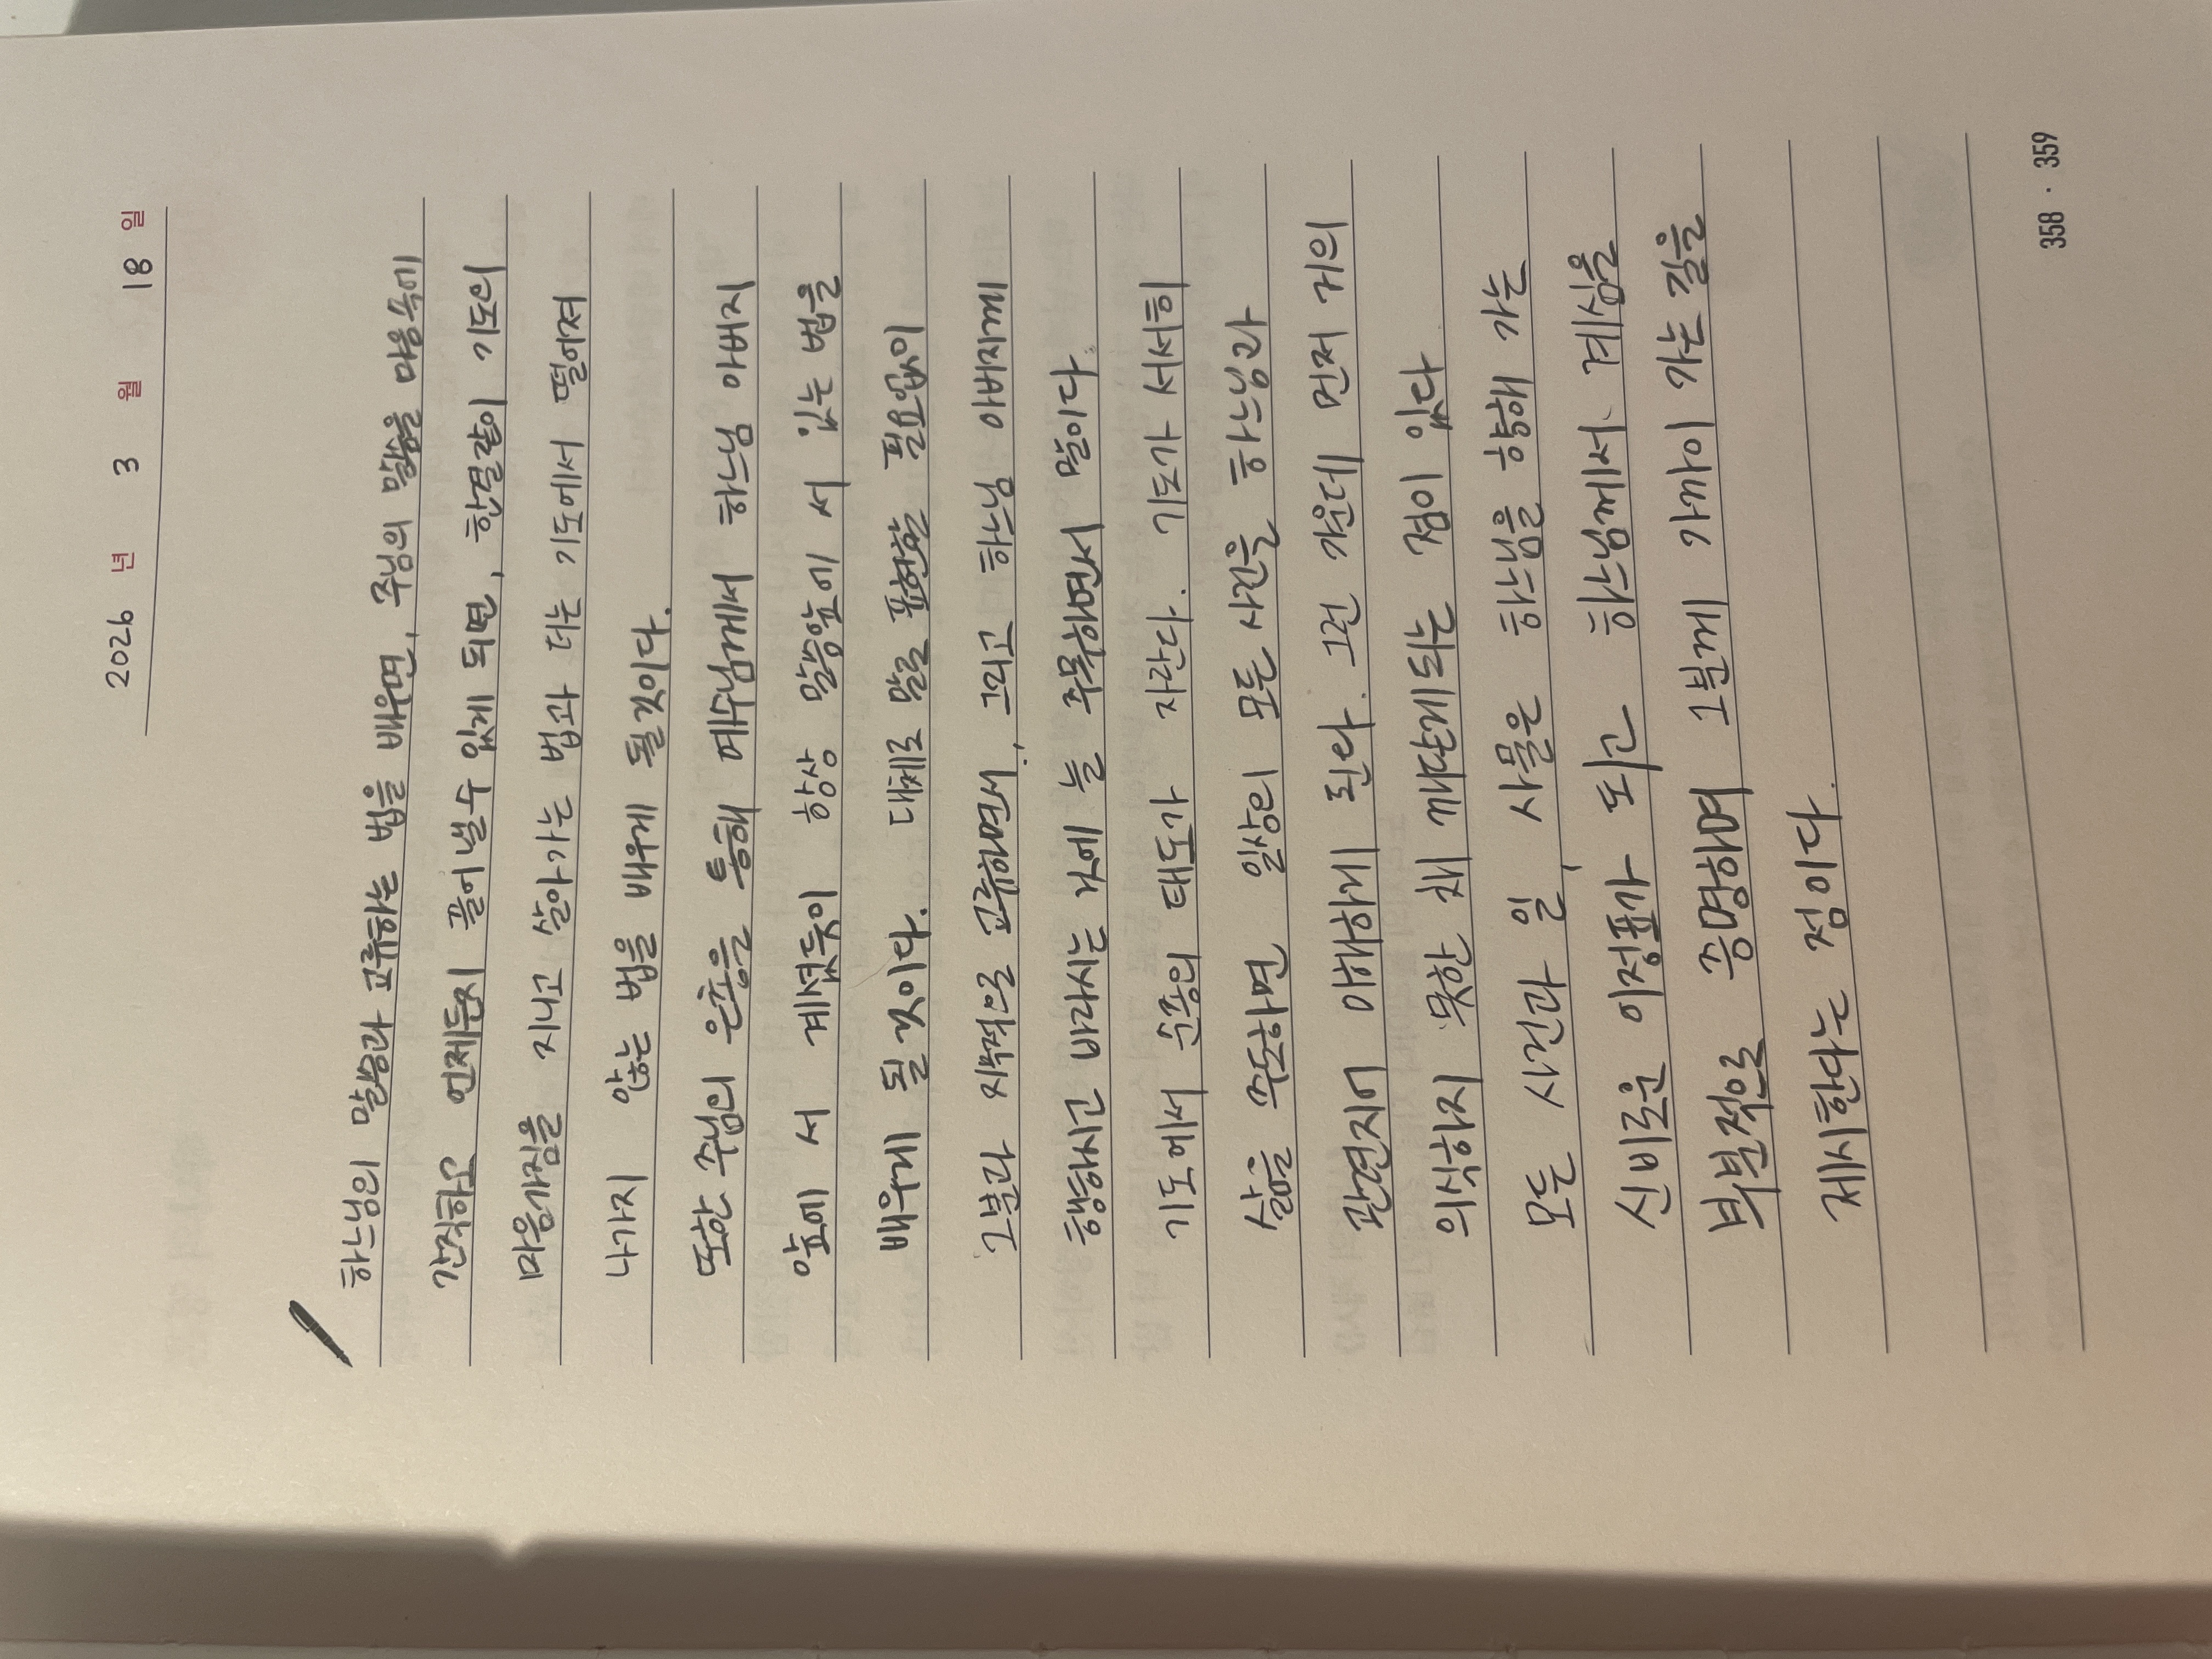 2026 년 3 월 18 일
하느님의 말씀과 교류하는 법을 배우면, 주님의 말씀을 마음 속에
간직하고 언제든지 풀어낼수 있게 되면, 한결같이 기도의
마음가짐을 지니고 살아가는 법과 더는 기도에서 떨어져
나가지 않는 법을 배우게 될 것이다.
또한 주님의 은총을 통해 예수님께서 하느님 아버지
앞에 서 계셨듯이 항상 말씀앞에 서 있는 법을
배우게 될 것이다. 대체로 말로 표현할 필요없이
그분과 지속적으로 교류하면서, 그리고 하느님 아버지께
행하시고 바라시는 것에 늘 주목하면서 말이다
기도에서 순종의 태도가 자란다. 기도가 서서히
삶을 주도하면 일상의 모든 사건을 하느님과
관련지어 이해하게 된다. 그런 가운데 먼저 거의
의식하지 못한 채 깨닫게되는 점이 있다
모든 사건과 일, 사물은 하느님을 향해 가는
신비로운 이정표가 되고 하느님께서 계심을
부분적으로 증명하며 그분께 가까이 가는 길을
제시한다는 점이다.
358 · 359